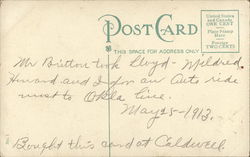 POST CARD
THIS SPACE FOR ADDRESS ONLY
United States
and Canada
ONE CENT
Place Stamp
Here
Foreign
TWO CENTS
Mr Britton took Lloyd - Mildred
Howard and I for an Auto ride
west to Okla line.
May 25-1913.
Bought this card at Caldwell